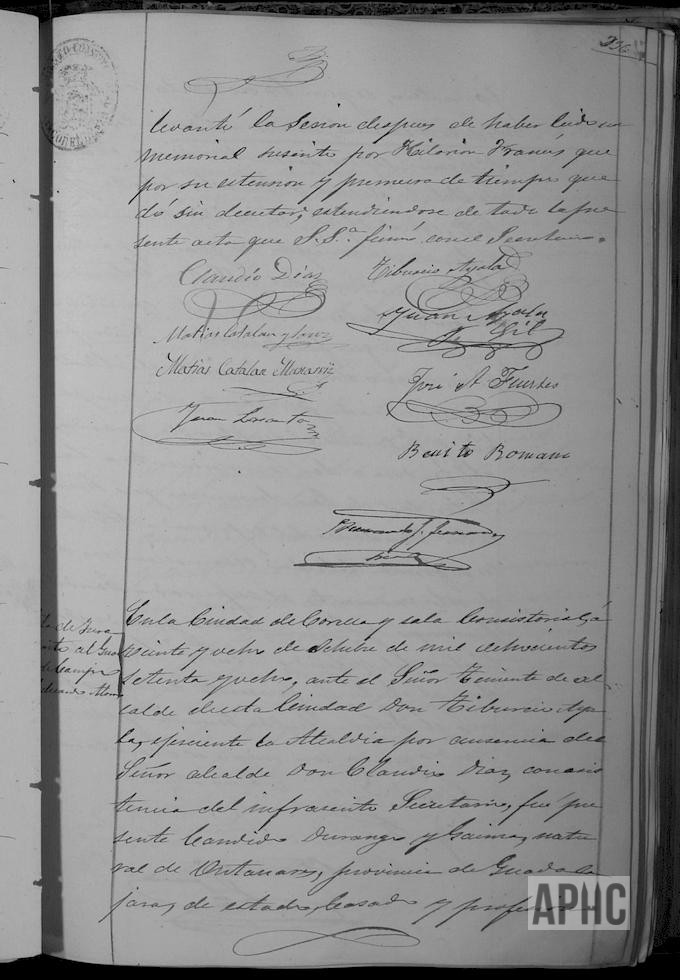 236
levantó la Sesion despues de haber leido un
memorial suscrito por Hilarion Francés que
por su estension y premura de tiempo que
dó sin decretar; estendiendose de todo la pre
sente acta que S.Sª. firmó con el Secretario.
Claudio Diaz
Tiburcio Ayala
Matias Catalan y
Juan Ayala
Gil
Matias Catalan
José A Fuertes
Juan
Benito Romano
En la Ciudad de Corella y sala Consistorial, á
veinte y ocho de Octubre de mil ochocientos
setenta y ocho, ante el Señor Teniente de al
calde de esta Ciudad Don Tiburcio Aya
la, ejerciente la Alcaldia por ausencia del
Señor alcalde Don Claudio Diaz, con asis
tencia del infrascrito Secretario, fué pre
sente Candido Durango y natu
ral de provincia de Guadala
jara, de estado Casado y profesion
APHC